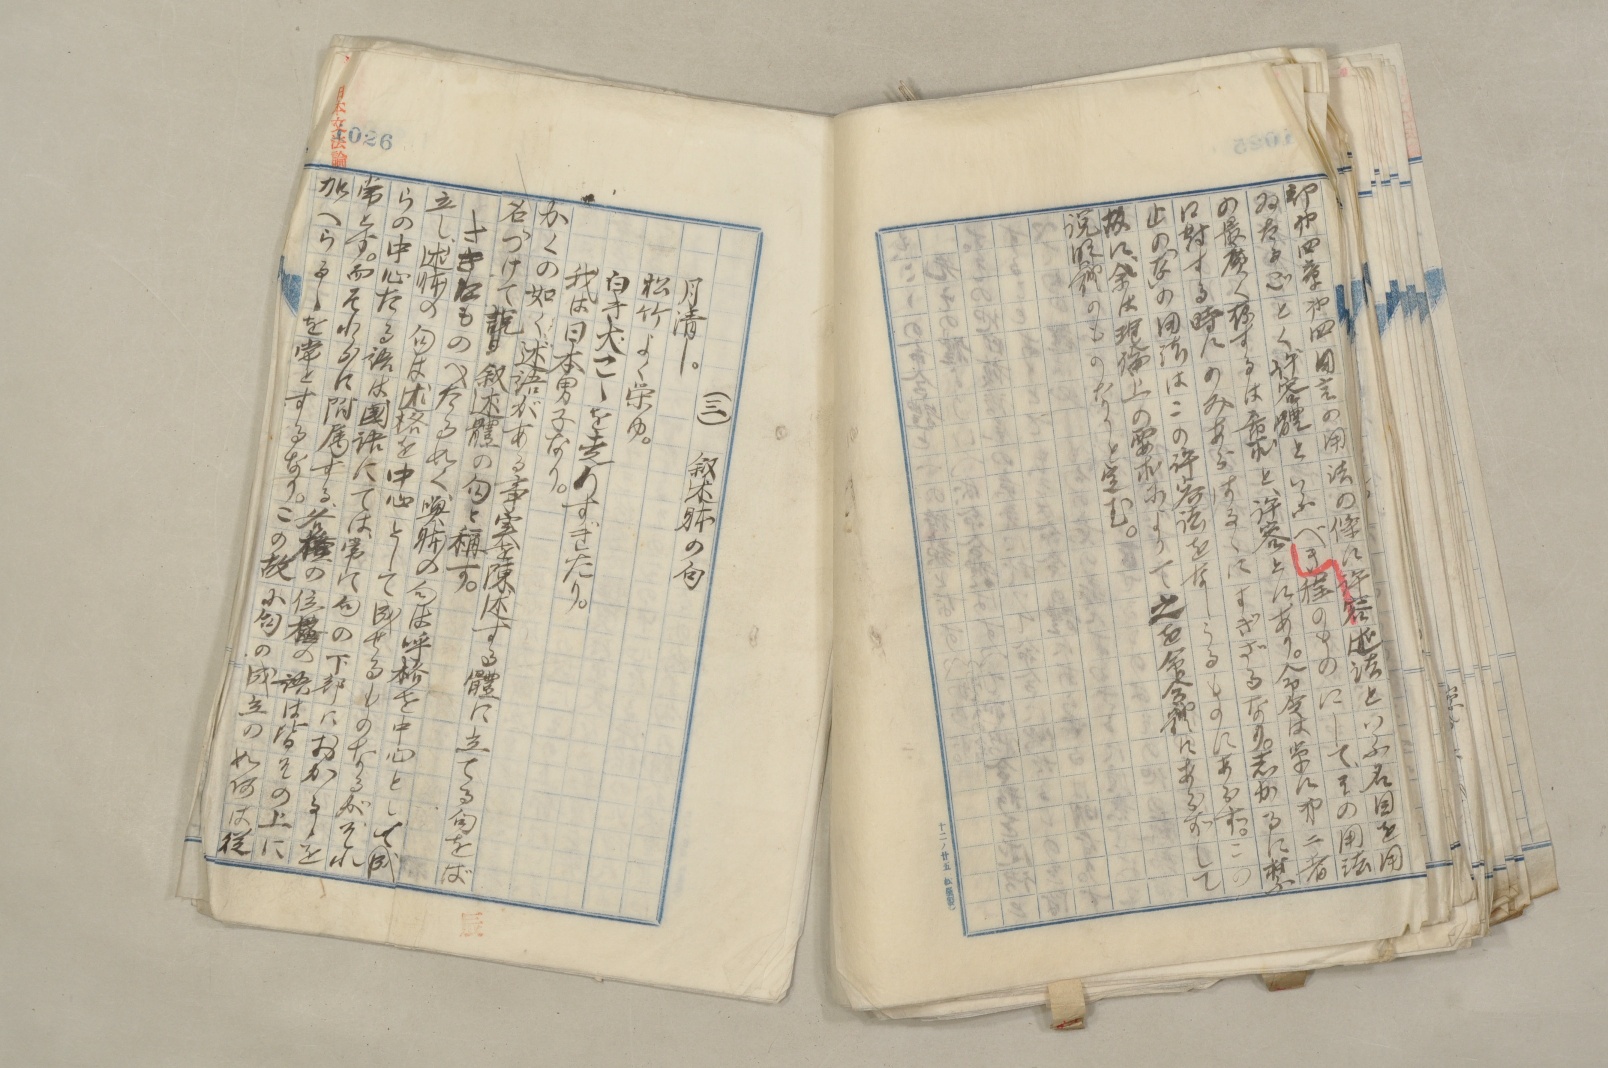 即第四章第四節言の用法の條に許容述法といふ名目を用
ゐたるごとく許容體といふべき程のものにして、その用法
の最廣く称するは希求と、許容とにあり。命令は常に第二者
に對する時にのみあらはるゝにすぎざるなり。しかるに禁
止の「な」の用法はこの許容法をなしうるものにあらず。この
故に余は理論上の要求によりて之を命令體にあらずして
説明體のものなりと定む。
(三) 叙述躰の句
月清し。
松竹よく榮ゆ。
白き犬こゝを走りすぎたり。
我は日本男子なり。
かくの如く述語がある事實を陳述する體に立てる句をば
名づけて叙述體の句と稱す。
さきにものべたる如く喚躰の句は呼格を中心として成
立し、述躰の句は述格を中心として成せるものなるがそれ
らの中心たる語は國語にては常に句の下部におかるゝを
常とす。而それらに附属する各種の位格の語は皆その上に
加へらるゝを常とするなり。この故に句の成立の如何は從
1026
日本文法論
辰